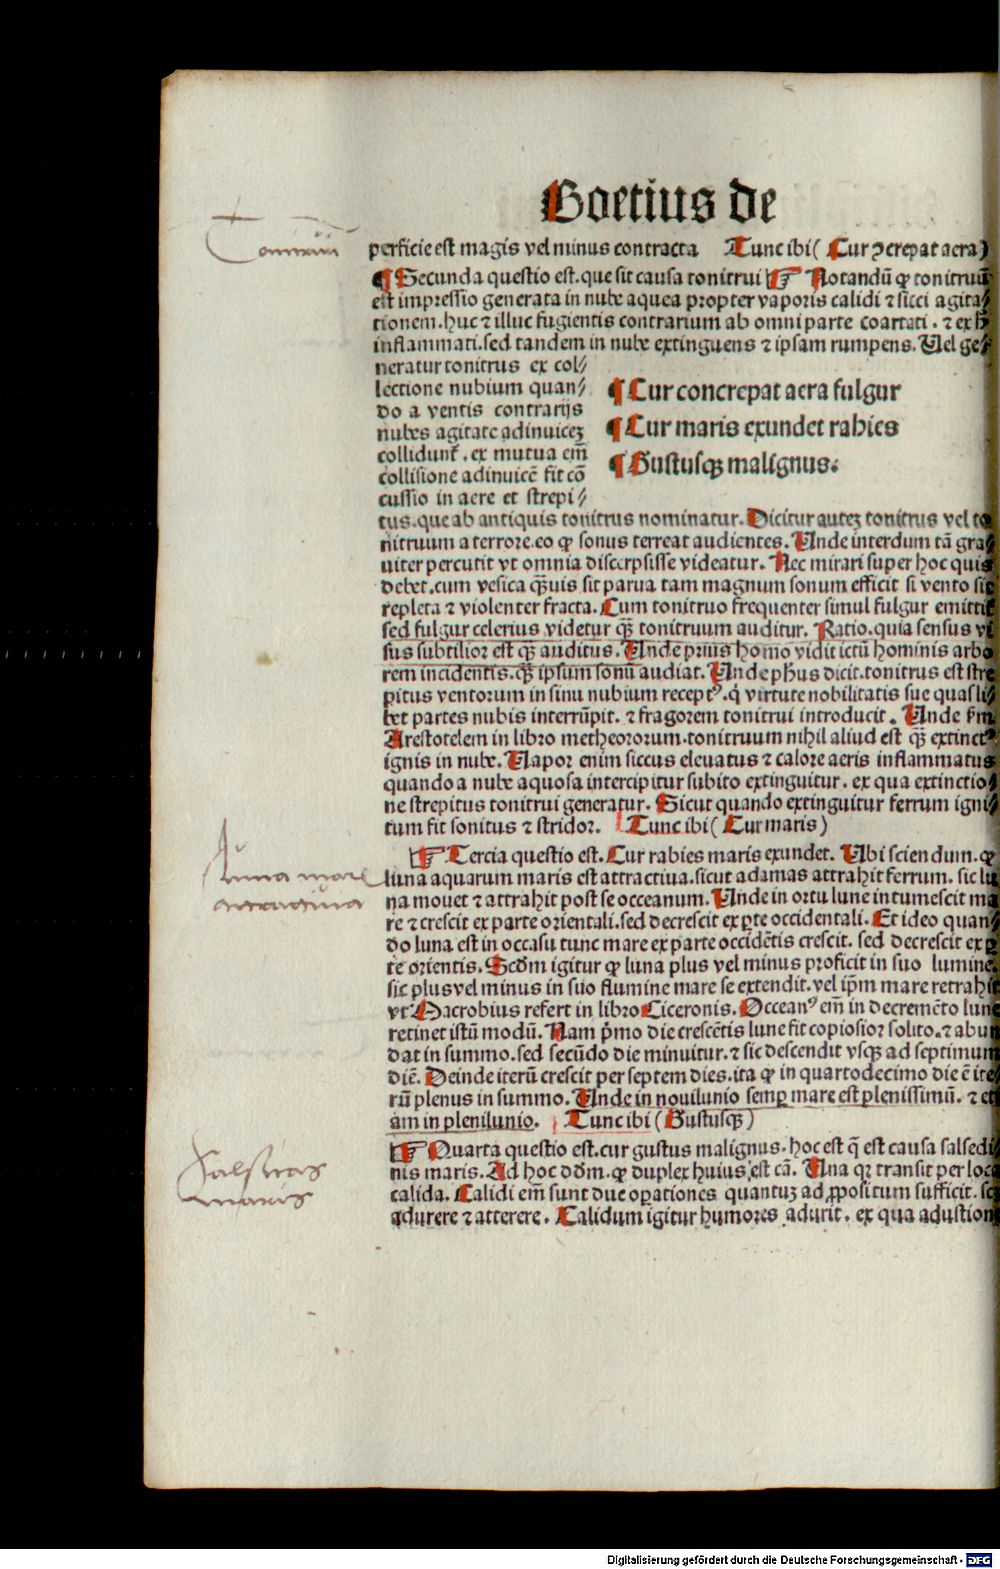 Boetius de
Tonitruum
perficie est magis vel minus contracta Tunc ibi( Cur ꝯcrepat aera)
¶ Secunda questio est. que sit causa tonitrui ☞ Notandū ꝙ tonitruū
est impressio generata in nube aquea propter vaporis calidi ⁊ sicci agita⸗
tionem. huc ⁊ illuc fugientis contrarium ab omni parte coartati. ⁊ ex h̄
inflammati. sed tandem in nube extinguens ⁊ ipsam rumpens. Uel ge⸗
neratur tonitrus ex col⸗
lectione nubium quan⸗
do a ventis contrarijs
nubes agitate adinuicez
collidunt᷑. ex mutua em̄
collisione adinuicē fit cō
cussio in aere et strepi⸗
¶ Cur concrepat aera fulgur
¶ Cur maris exundet rabies
¶ Gustusqꝫ malignus.
tus. que ab antiquis tonitrus nominatur. Dicitur autez tonitrus vel to
nitruum a terrore. eo ꝙ sonus terreat audientes. Unde interdum tā gra⸗
uiter percutit vt omnia discerpsisse videatur. Nec mirari super hoc quis
debet. cum vesica qᷓuis sit parua tam magnum sonum efficit si vento sit
repleta ⁊ violenter fracta. Cum tonitruo frequenter simul fulgur emittit᷑
sed fulgur celerius videtur qᷓꝫ tonitruum auditur. Ratio. quia sensus vi
sus subtilior est qᷓꝫ auditus. Unde prius homo vidit ictū hominis arbo
rem incidentis. qᷓꝫ ipsum sonū audiat. Unde ph̄us dicit. tonitrus est stre
pitus ventorum in sinu nubium receptꝰ. q̇ virtute nobilitatis sue quasli⸗
bet partes nubis interrūpit. ⁊ fragorem tonitrui introducit. Unde ẜm
Arestotelem in libro metheororum. tonitruum nihil aliud est qᷓꝫ extinctꝰ
ignis in nube. Uapor enim siccus eleuatus ⁊ calore aeris inflammatus
quando a nube aquosa intercipitur subito extinguitur. ex qua extinctio⸗
ne strepitus tonitrui generatur. Sicut quando extinguitur ferrum igni⸗
tum fit sonitus ⁊ stridor. Tunc ibi( Cur maris)
Luna mare
attractiua
☞ Tercia questio est. Cur rabies maris exundet. Ubi sciendum. ꝙ
luna aquarum maris est attractiua. sicut adamas attrahit ferrum. sic lu
na mouet ⁊ attrahit post se occeanum. Unde in ortu lune intumescit ma
re ⁊ crescit ex parte orientali. sed decrescit ex ꝑte occidentali. Et ideo quan⸗
do luna est in occasu tunc mare ex parte occidētis crescit. sed decrescit ex ꝑ
te orientis. Scd̄m igitur ꝙ luna plus vel minus proficit in suo lumine.
sic plus vel minus in suo flumine mare se extendit. vel ip̄m mare retrahit
vt Macrobius refert in libro Ciceronis. Occeanꝰ em̄ in decremēto lune
retinet istū modū. Nam p̄mo die crescētis lune fit copiosior solito. ⁊ abun
dat in summo. sed secūdo die minuitur. ⁊ sic descendit vsqꝫ ad septimum
diē. Deinde iterū crescit per septem dies. ita ꝙ in quartodecimo die ē ite⸗
rū plenus in summo. Unde in nouilunio semꝑ mare est plenissimū. ⁊ eti
am in plenilunio. Tunc ibi( Gustusqꝫ)
Salsitas
maris
☞ Quarta questio est. cur gustus malignus. hoc est q̄ est causa salsedi⸗
nis maris. Ad hoc dd̄m. ꝙ duplex huius est cā. Una qꝫ transit per loca
calida. Calidi em̄ sunt due oꝑationes quantuꝫ ad ꝓpositum sufficit. scꝫ
adurere ⁊ atterere. Calidum igitur humores adurit. ex qua adustione
Digitalisierung gefördert durch die Deutsche Forschungsgemeinschaft - DFG